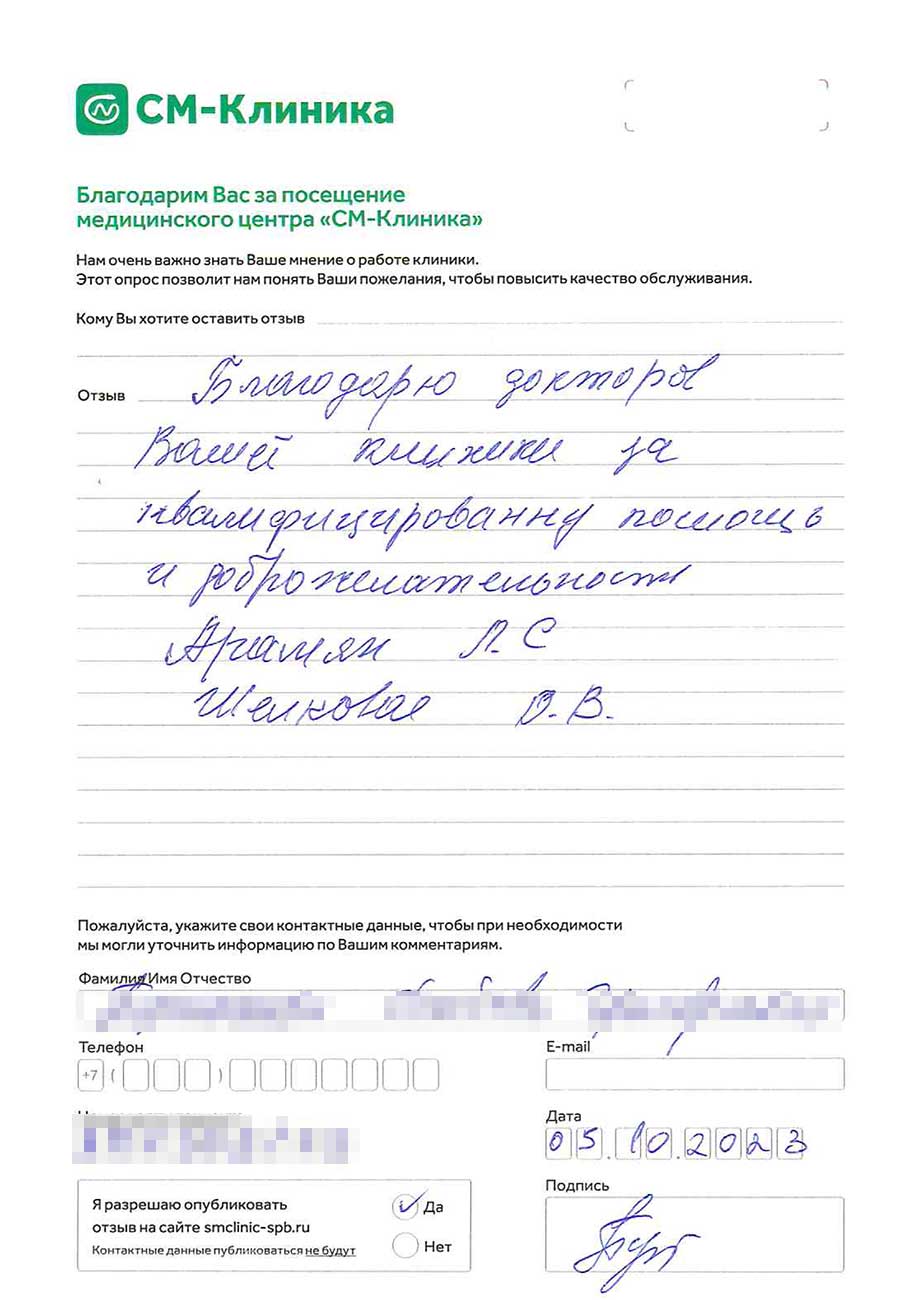 СМ-Клиника
Благодарим Вас за посещение
медицинского центра «СМ-Клиника»
Нам очень важно знать Ваше мнение о работе клиники.
Этот опрос позволит нам понять Ваши пожелания, чтобы повысить качество обслуживания.
Кому Вы хотите оставить отзыв
Отзыв Благодарю докторов
Вашей клиники за
квалифицированну помощь
и доброжелательность
Л. С
О. В.
Пожалуйста, укажите свои контактные данные, чтобы при необходимости
мы могли уточнить информацию по Вашим комментариям.
Фамилия Имя Отчество
Телефон
E-mail
+7 ( )
Дата
05.10.2023
Подпись
Я разрешаю опубликовать
отзыв на сайте smclinic-spb.ru
Контактные данные публиковаться не будут
Да
Нет